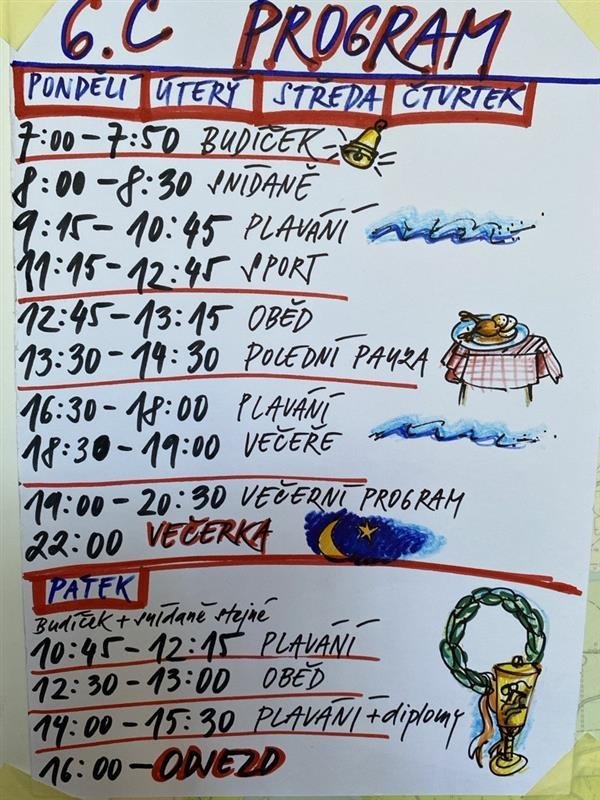 6.C PROGRAM
PONDĚLÍ ÚTERÝ STŘEDA ČTVRTEK
7:00-7:50 BUDÍČEK
8:00-8:30 SNÍDANĚ
9:15-10:45 PLAVÁNÍ
11:15-12:45 SPORT
12:45-13:15 OBĚD
13:30-14:30 POLEDNÍ PAUZA
16:30-18:00 PLAVÁNÍ
18:30-19:00 VEČEŘE
19:00-20:30 VEČERNÍ PROGRAM
22:00 VEČERKA
PÁTEK
Budíček + snídaně stejné
10:45-12:15 PLAVÁNÍ
12:30-13:00 OBĚD
14:00-15:30 PLAVÁNÍ + diplomy
16:00-ODJEZD